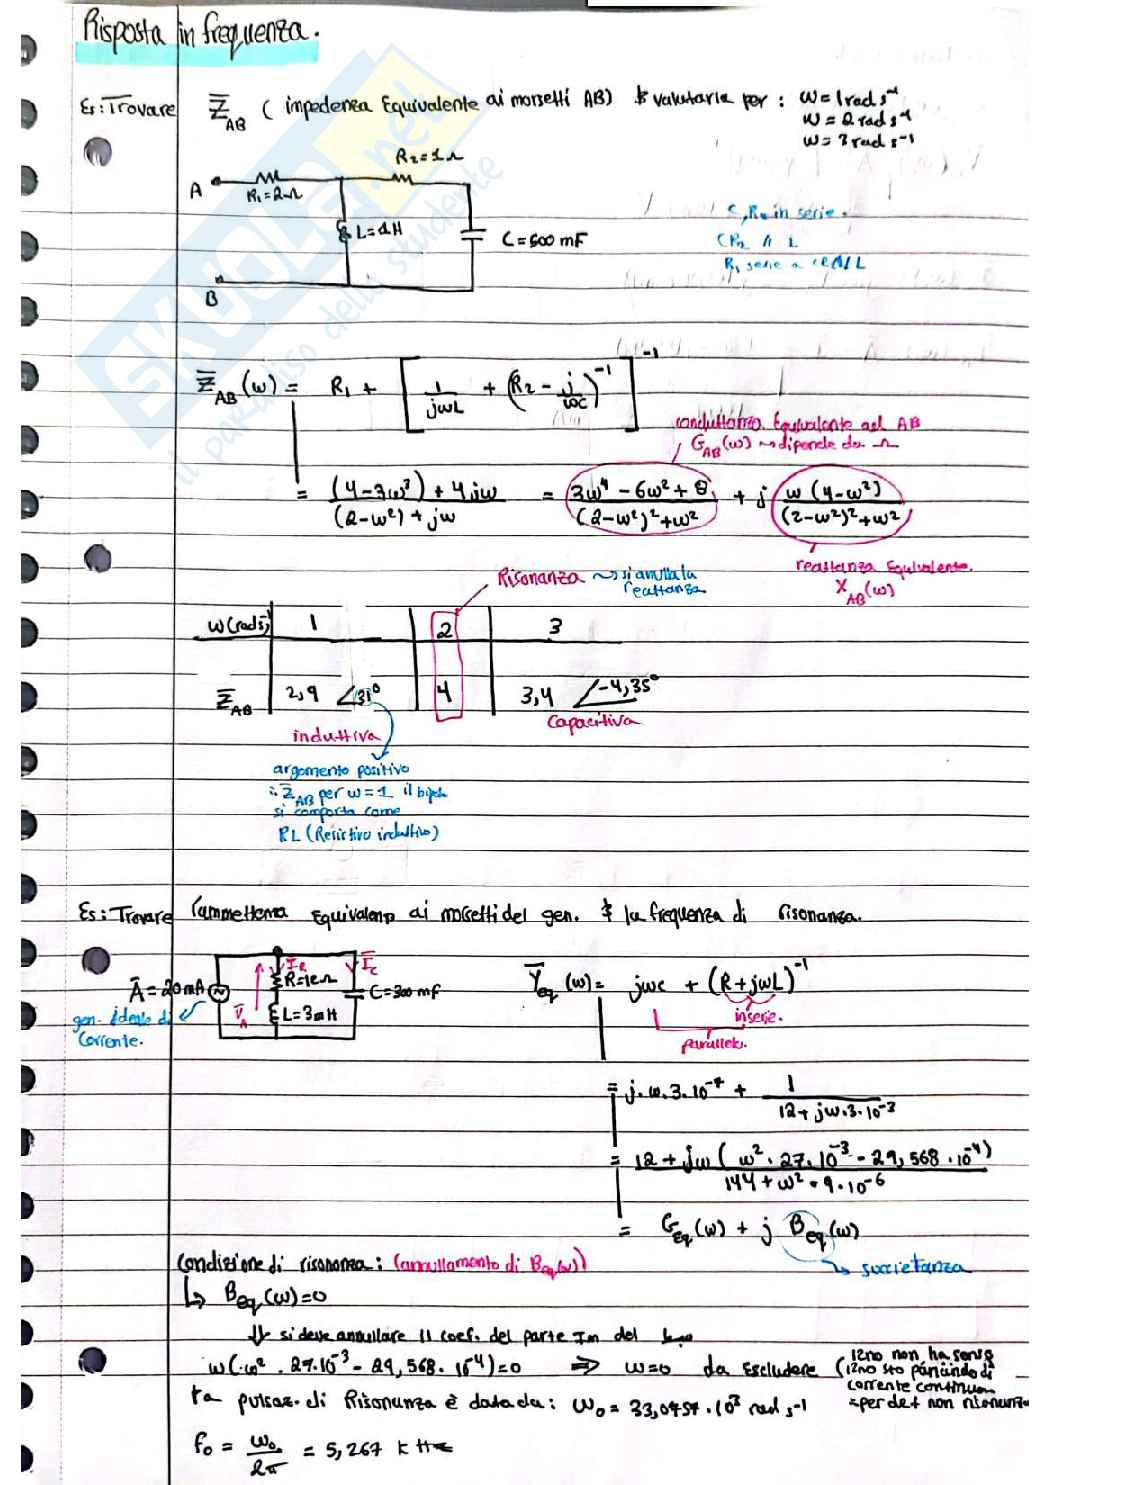 Risposta in frequenza.
Es: Trovare Z̅AB (impedenza Equivalente ai morsetti AB) & valutarla per: ω = 1 rad s⁻¹
ω = 2 rad s⁻¹
ω = 3 rad s⁻¹
R2 = 1Ω
A
R1 = 2Ω
L = 1H
C = 500 mF
B
C, R2 in serie.
CR2 // L
R1 serie a CR2//L
Z̅AB (ω) = R1 + [ 1/jωL + (R2 - j/ωC)⁻¹ ]⁻¹
conduttanza Equivalente ad AB
GAB(ω) ~> dipende da
= (4-3ω²) + 4jω / (2-ω²) + jω = 3ω⁴ - 6ω² + 8 / (2-ω²)² + ω² + j ω(4-ω²) / (2-ω²)² + ω²
reattanza Equivalente.
XAB(ω)
Risonanza ~> si annulla la
reattanza
ω(rad s⁻¹) 1 2 3
Z̅AB 2,9 ∠31° 4 3,4 ∠-4,35°
induttiva
capacitiva
argomento positivo
∴ Z̅AB per ω = 1 il bipolo
si comporta come
RL (Resistivo induttivo)
Es: Trovare l'ammettenza Equivalente ai morsetti del gen. & la frequenza di risonanza.
I̅R
I̅C
A̅ = 20 mA
R = 12Ω
C = 300 nF
V̅A
L = 3mH
gen. Ideale di
Corrente.
Y̅eq (ω) = jωC + (R + jωL)⁻¹
in serie.
parallelo.
= j·ω·3·10⁻⁷ + 1 / 12 + jω·3·10⁻³
= 12 + jω( ω²·27·10⁻³ - 29,568·10⁻⁴) / 144 + ω²·9·10⁻⁶
= Geq(ω) + j Beq(ω)
suscettanza
Condizione di risonanza: (annullamento di Beq(ω))
↳ Beq(ω) = 0
⇓ si deve annullare il coef. del parte Im del
ω(ω²·27·10⁻³ - 29,568·10⁻⁴) = 0 ⇒ ω = 0 da escludere (
non ha senso
sto parlando di
corrente continua
=> per def non
la pulsaz. di Risonanza è data da: ω0 = 33,0957·10³ rad s⁻¹
f0 = ω0/2π = 5,267 kHz
SKUOLA.net
il paradiso dello studente